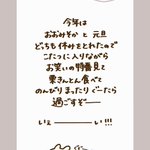 今年は
おおみそか と 元旦
どっちも 休みをとれたので
こたつに 入りながら
お笑いの 特番見て
栗きんとん食べて
のんびり まったり ぐーたら
過ごすぞー
いぇーーーい!!!